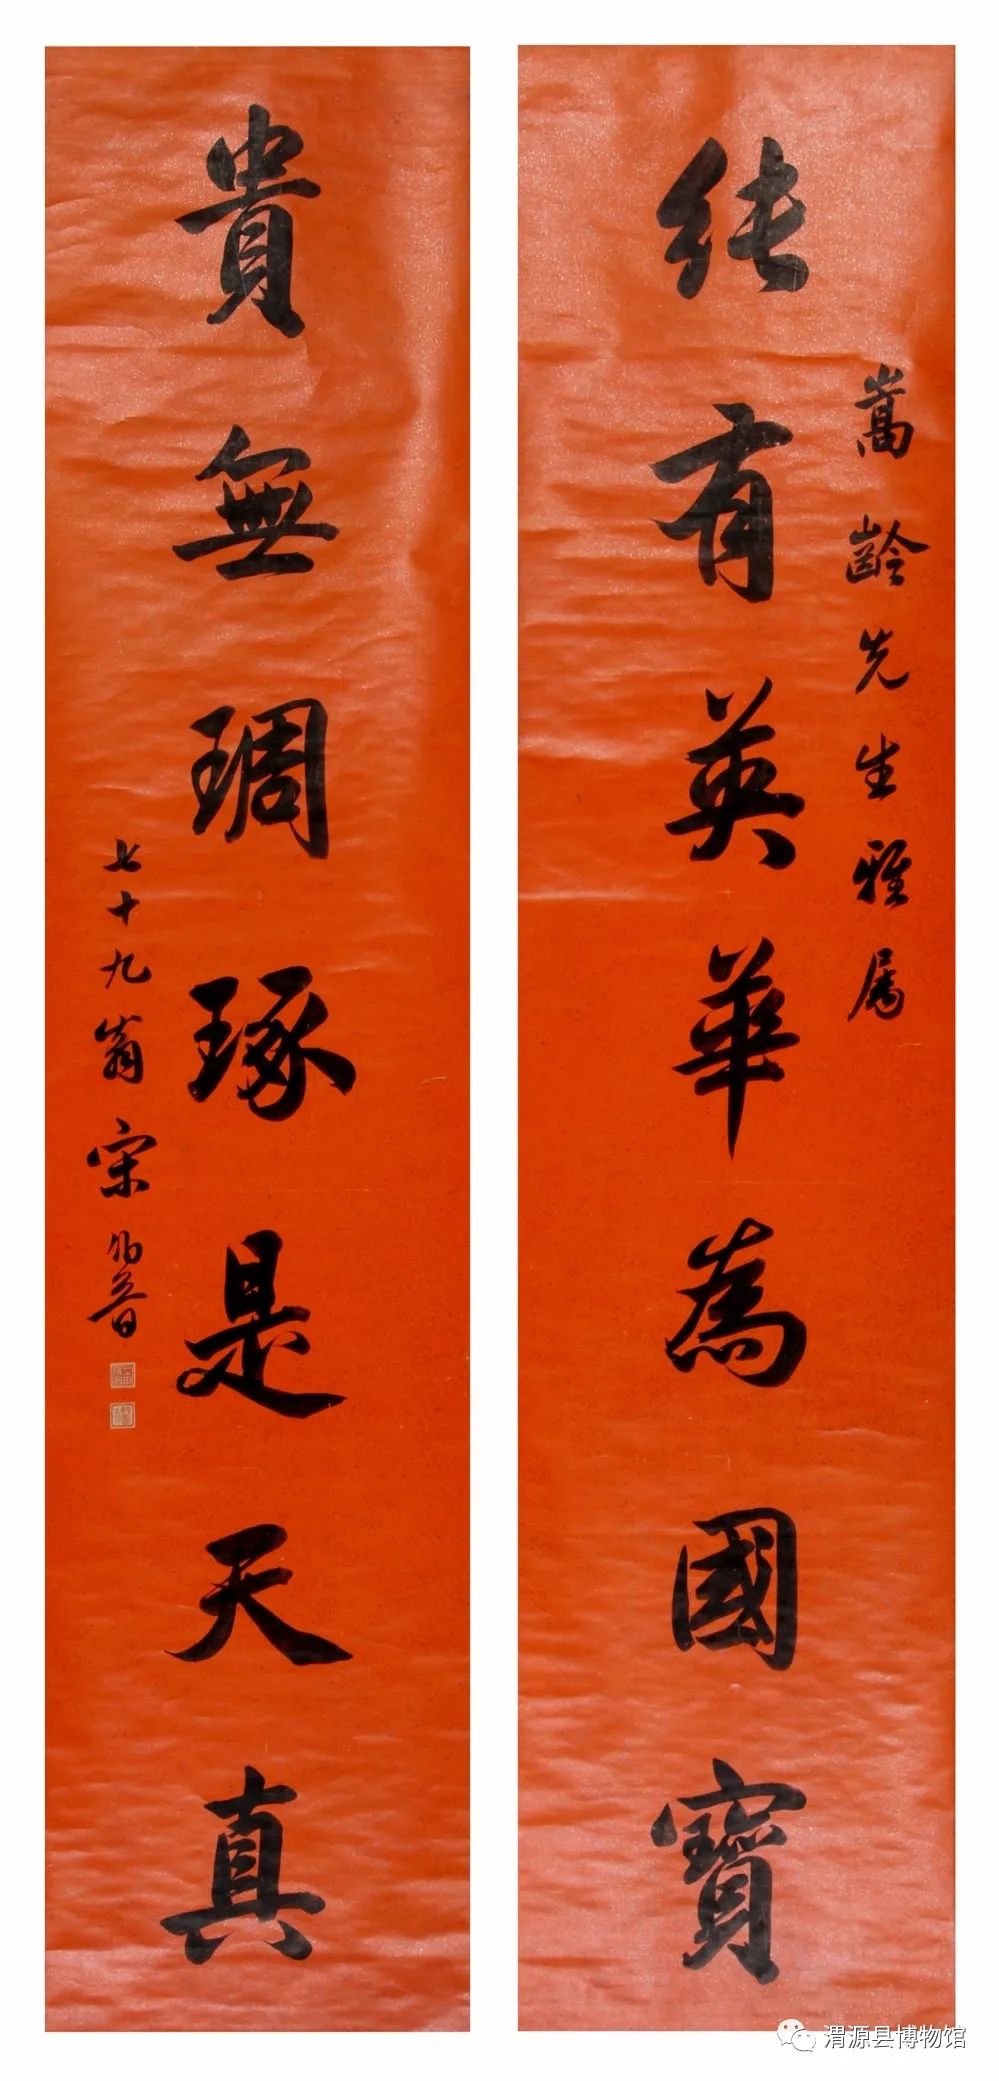 純有英華為國寶
嵩齡先生雅属
貴無琱琢是天真
七十九翁宋伯魯
渭源县博物馆